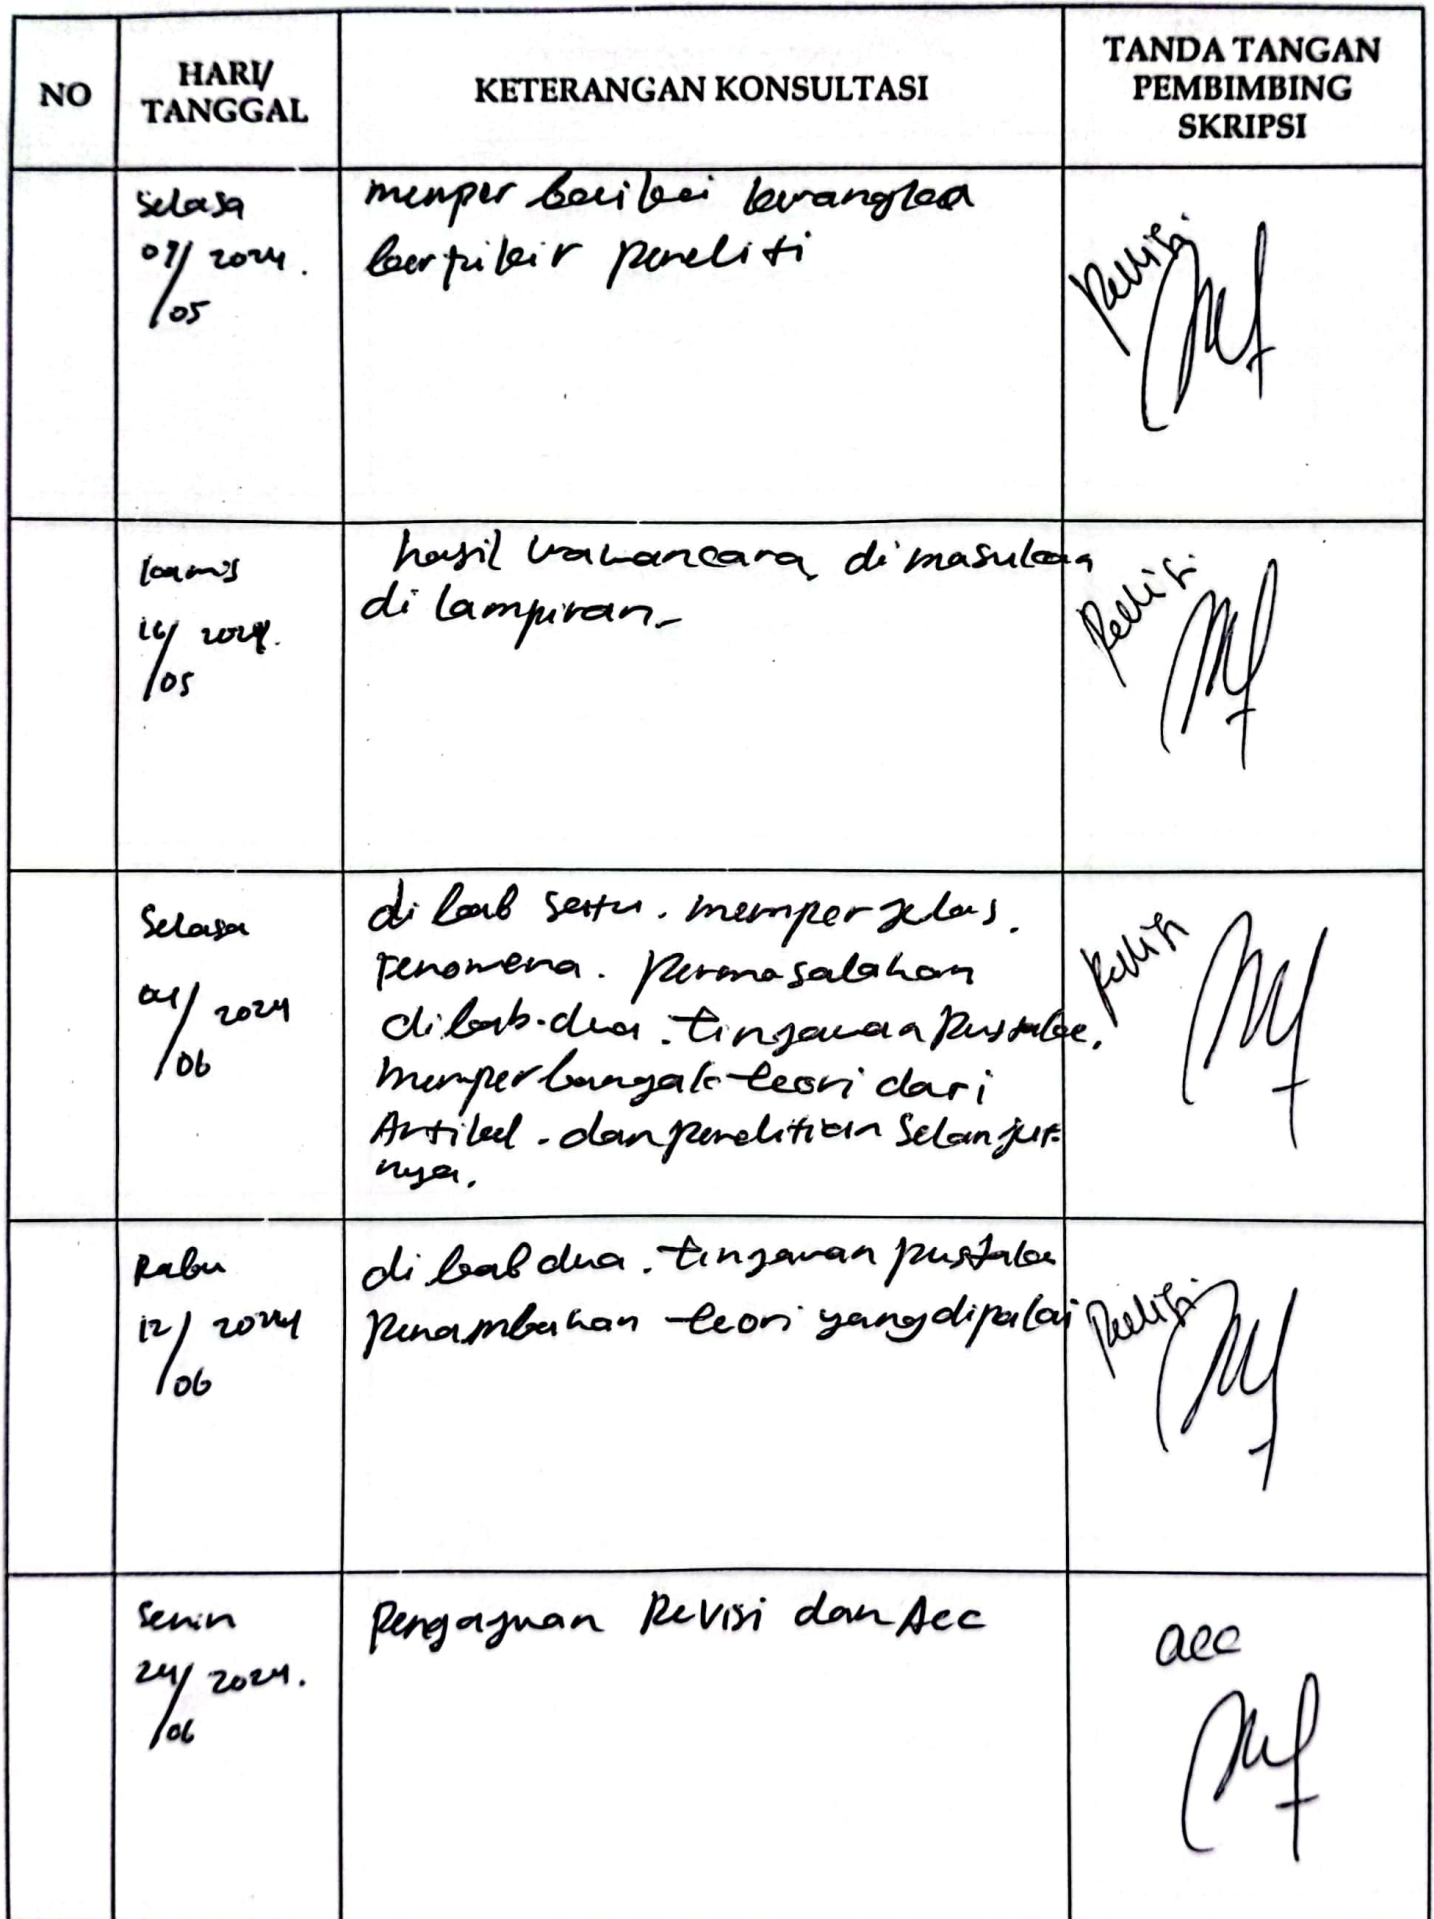 NO
HARI/
TANGGAL
KETERANGAN KONSULTASI
TANDA TANGAN
PEMBIMBING
SKRIPSI
Selasa
07/2024.
/05
memper baikai kerangka
berpikir peneliti
Revisi
kamis
16/2024.
/05
hasil wawancara, di masukan
di lampiran-
Revisi
Selasa
04/2024
/06
di bab satu. memper jelas.
Fenomena. permasalahan
di bab.dua. tinjauan pustaka.
memperbanyak teori dari
Artikel. dan penelitian Selanjut-
nya.
Revisi
Rabu
12/2024
/06
di bab dua. tinjauan pustaka
penambahan teori yang dipakai
Revisi
Senin
24/2024.
/06
Pengajuan Revisi dan Acc
acc